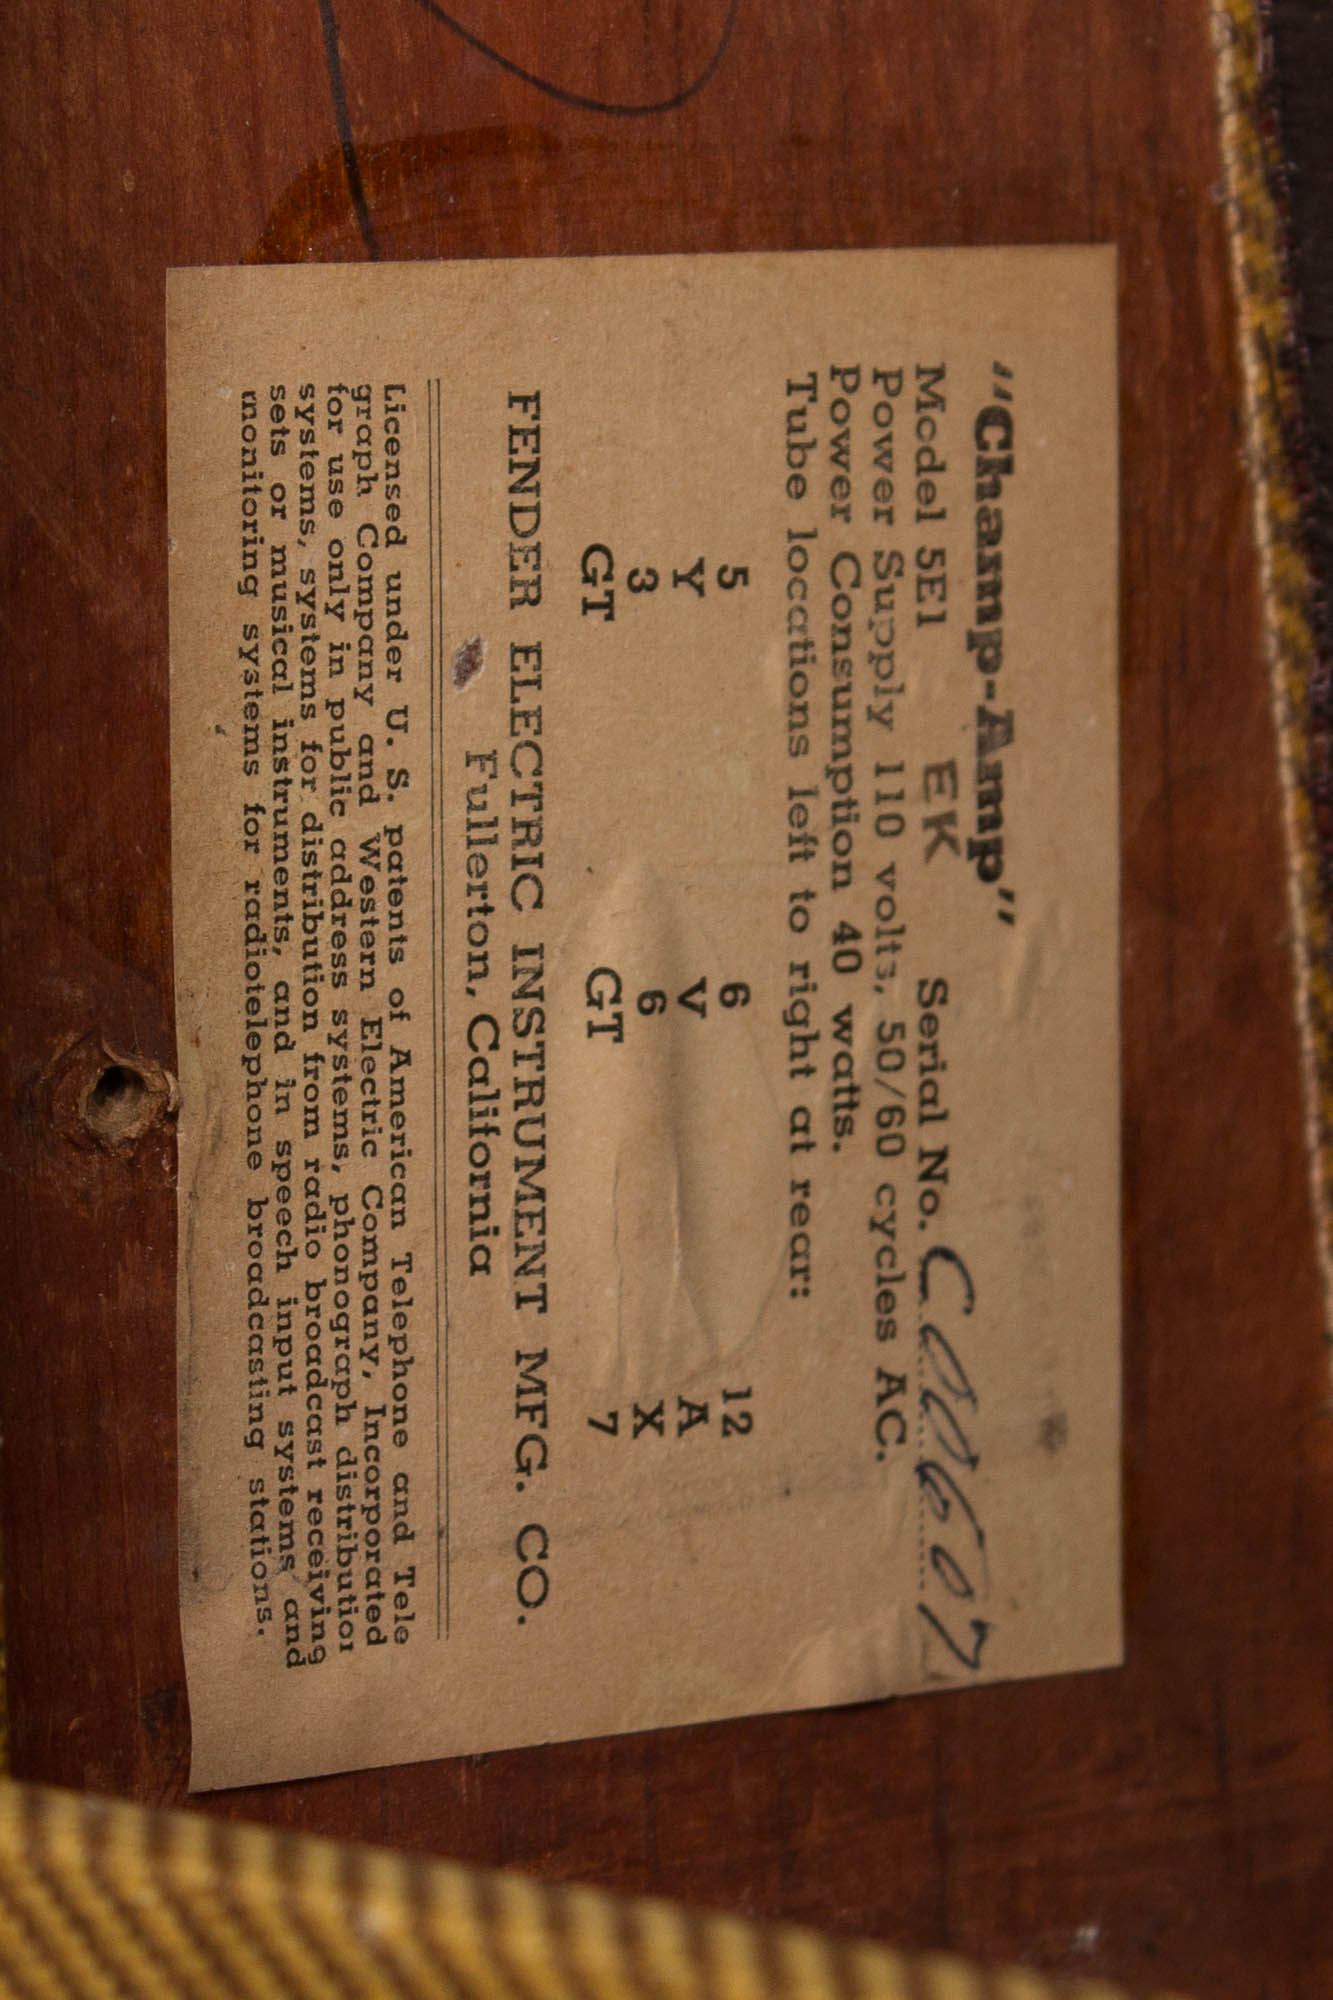 "Champ-Amp"
Model 5E1 EK Serial No. C00607
Power Supply 110 volts, 50/60 cycles AC.
Power Consumption 40 watts.
Tube locations left to right at rear:
5 6 12
Y V A
3 6 X
GT GT 7
FENDER ELECTRIC INSTRUMENT MFG. CO.
Fullerton, California
Licensed under U. S. patents of American Telephone and Tele
graph Company and Western Electric Company, Incorporated
for use only in public address systems, phonograph distribution
systems, systems for distribution from radio broadcast receiving
sets or musical instruments, and in speech input systems and
monitoring systems for radiotelephone broadcasting stations.